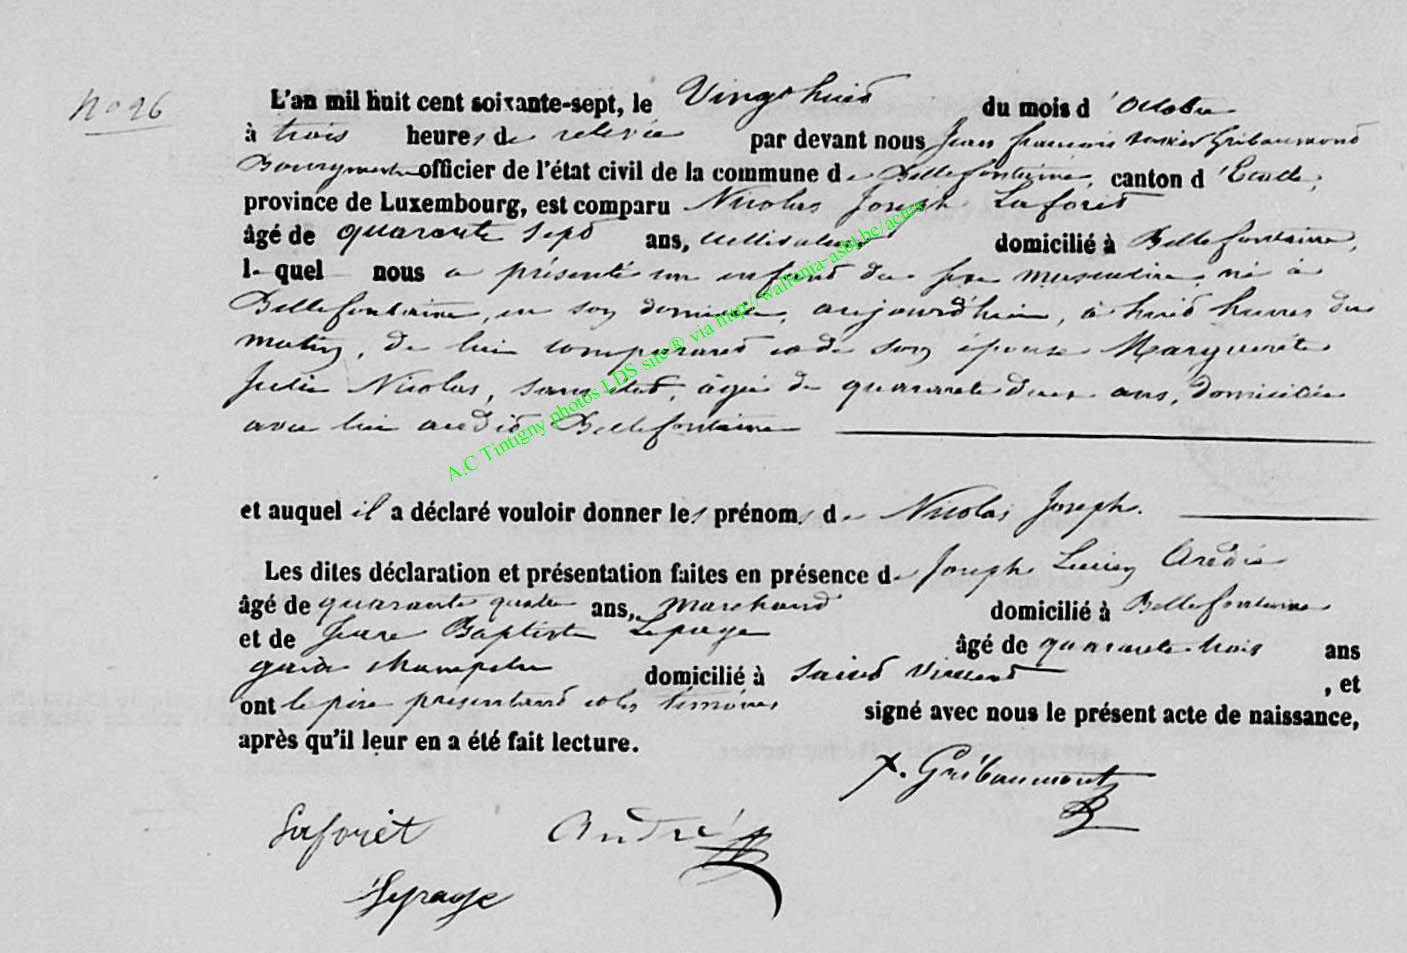 No 26
L'an mil huit cent soixante-sept, le Vingt huit du mois d'octobre
à trois heures de relevée par devant nous Jean François Xavier Gribaumont
Bourgmestre officier de l'état civil de la commune de Bellefontaine, canton d'Etalle,
province de Luxembourg, est comparu Nicolas Joseph Laforêt
âgé de quarante sept ans, domicilié à Bellefontaine,
lequel nous a présenté un enfant du sexe masculin, né à
Bellefontaine, en son domicile, aujourd'hui, à huit heures du
matin, de lui comparant et de son épouse Marguerite
Julie Nicolas, sans état, âgée de quarante deux ans, domiciliée
avec lui audit Bellefontaine
et auquel il a déclaré vouloir donner les prénoms de Nicolas Joseph.
Les dites déclaration et présentation faites en présence de Joseph Lucien André
âgé de quarante quatre ans, marchand domicilié à Bellefontaine
et de Jean Baptiste Lepage âgé de quarante trois ans
garde champêtre domicilié à Saint Vincent, et
ont le père présentant et les témoins signé avec nous le présent acte de naissance,
après qu'il leur en a été fait lecture.
X. Gribaumont
Laforêt André
Lepage
A.C Tintigny photos LDS site® via http://wallonia-asbl.be/actes